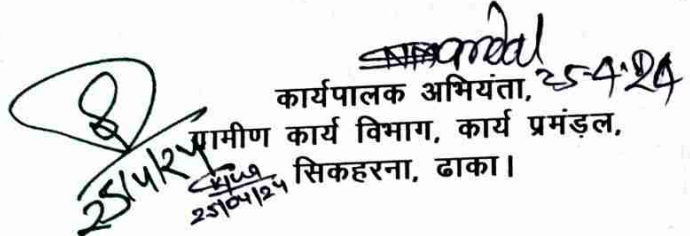 25-4-24
कार्यपालक अभियंता,
ग्रामीण कार्य विभाग, कार्य प्रमंड़ल,
सिकहरना, ढाका।
25/4/24
25/04/24